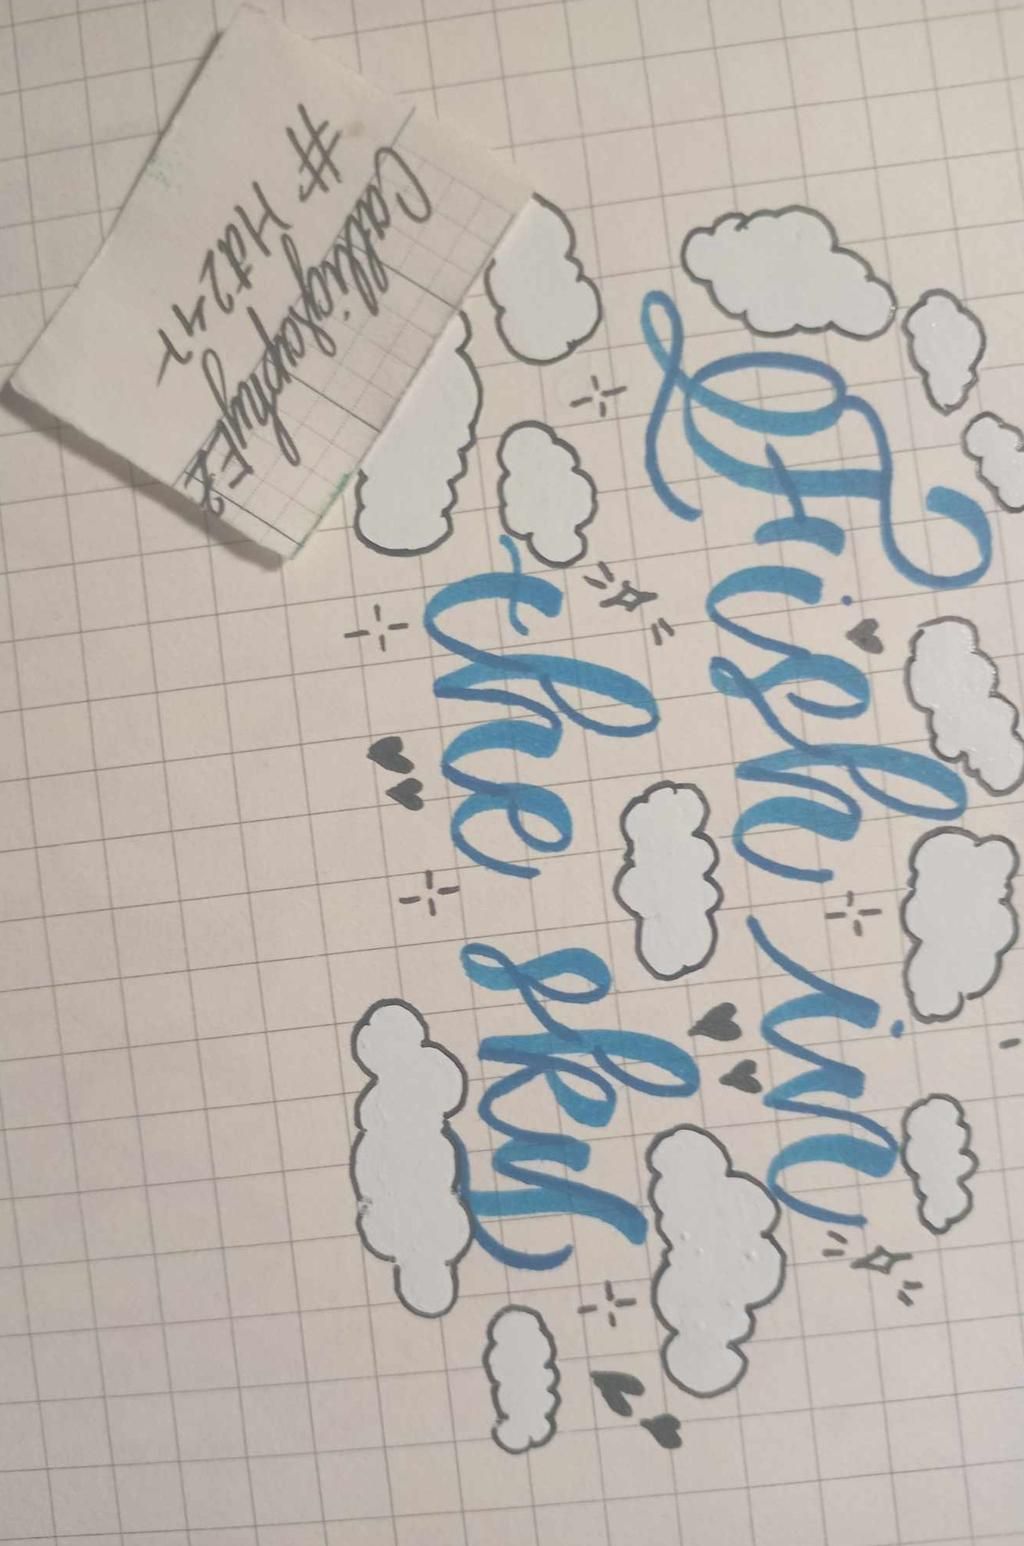 Fish in
the sky
Calligraphy